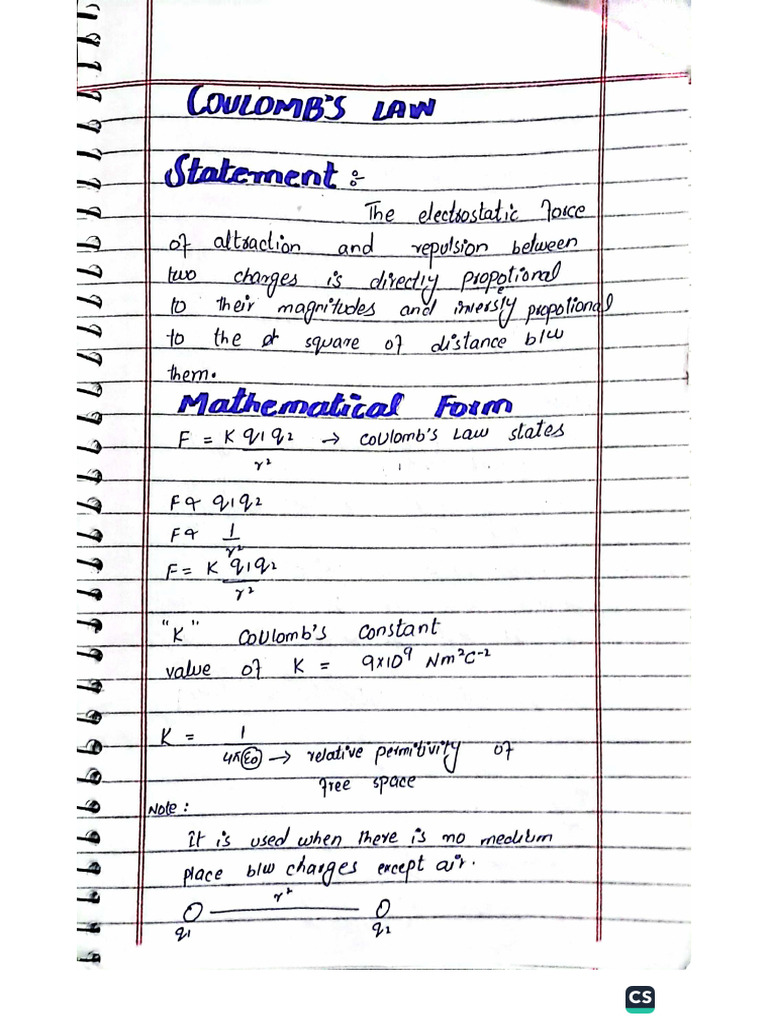 COULOMB'S LAW
Statement :-
The electrostatic force
of attraction and repulsion between
two charges is directly propotional
to their magnitudes and inversly propotional
to the square of distance b/w
them.
Mathematical Form
F = K q1q2 → Coulomb's Law states
r²
F α q1q2
F α 1
r²
F = K q1q2
r²
"K" Coulomb's constant
value of K = 9×10⁹ Nm²C⁻²
K = 1
4πε0 → relative permitivity of
free space
Note :
It is used when there is no medium
place b/w charges except air.
r²
q1 q2
CS